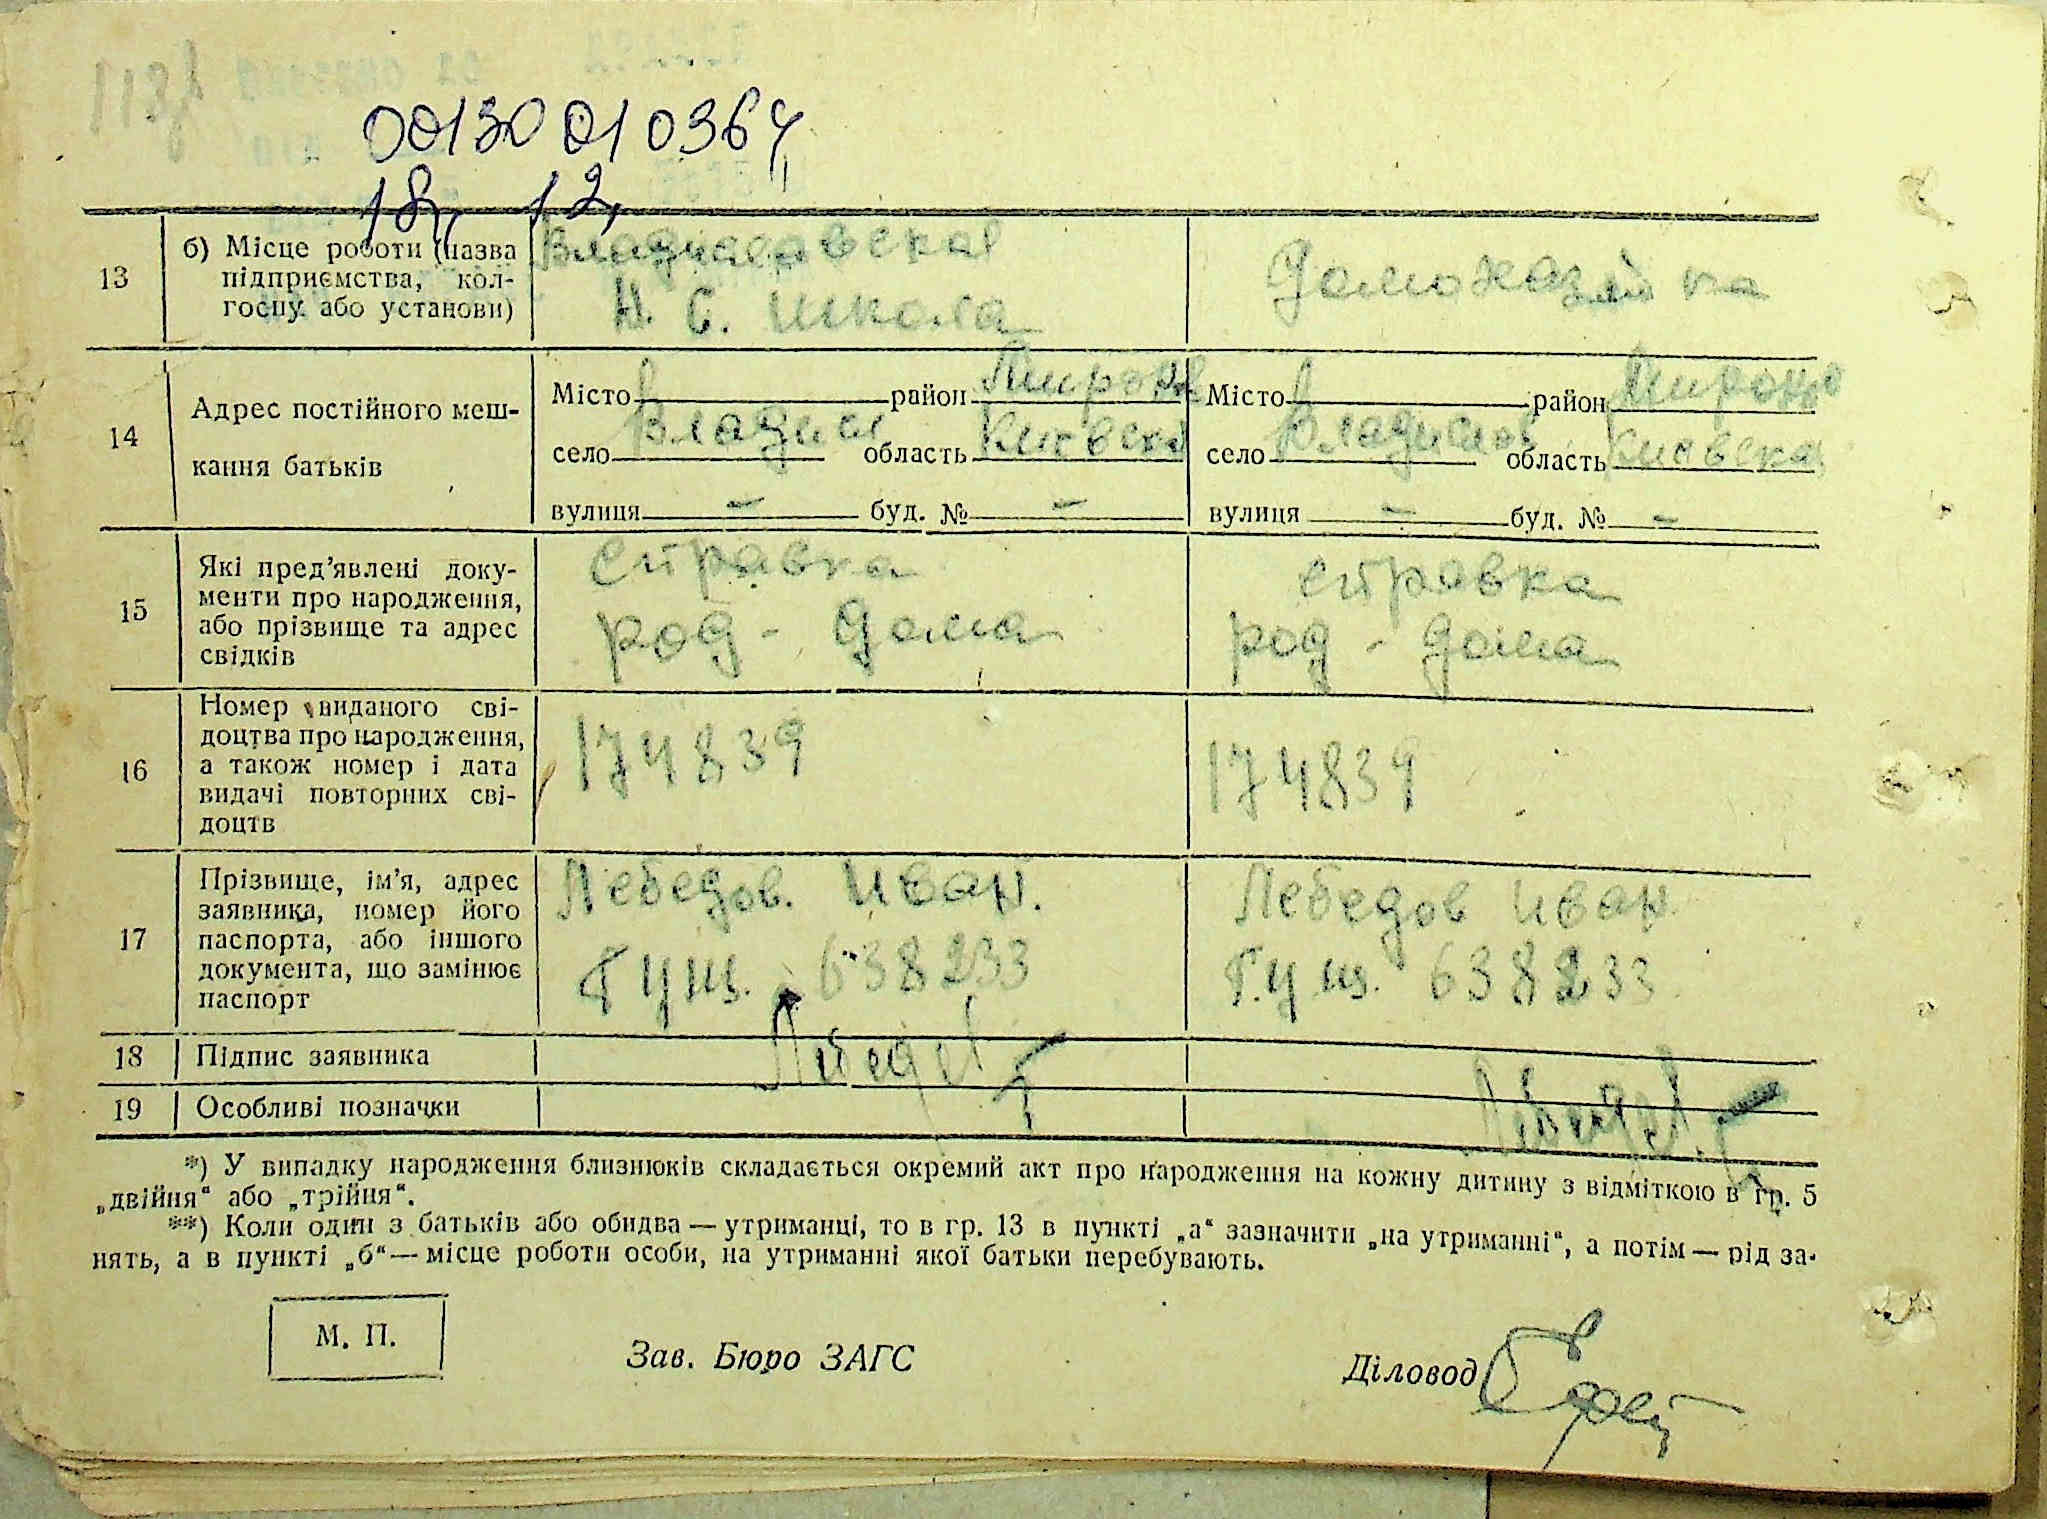 00130010364
18, 12,
13 б) Місце роботи (назва підприємства, колгоспу або установи) Владиславская Домохазяйка
Н. С. школа
14 Адрес постійного мешкання батьків
Місто район Мироно Місто район Мироно
село Владисл область Киевска село Владислов область Киевска
вулиця – буд. № – вулиця – буд. № –
15 Які пред’явлені документи про народження, або прізвище та адрес свідків
справка справка
род - дома род - дома
16 Номер виданого свідоцтва про народження, а також номер і дата видачі повторних свідоцтв
174839 174839
17 Прізвище, ім’я, адрес заявника, номер його паспорта, або іншого документа, що замінює паспорт
Лебедов. Иван. Лебедов Иван
638233 638233
18 Підпис заявника
19 Особливі позначки
*) У випадку народження близнюків складається окремий акт про народження на кожну дитину з відміткою в гр. 5
„двійня“ або „трійня“.
**) Коли один з батьків або обидва — утриманці, то в гр. 13 в пункті „а“ зазначити „на утриманні“, а потім — рід за-
нять, а в пункті „б“ — місце роботи особи, на утриманні якої батьки перебувають.
М. П. Зав. Бюро ЗАГС Діловод